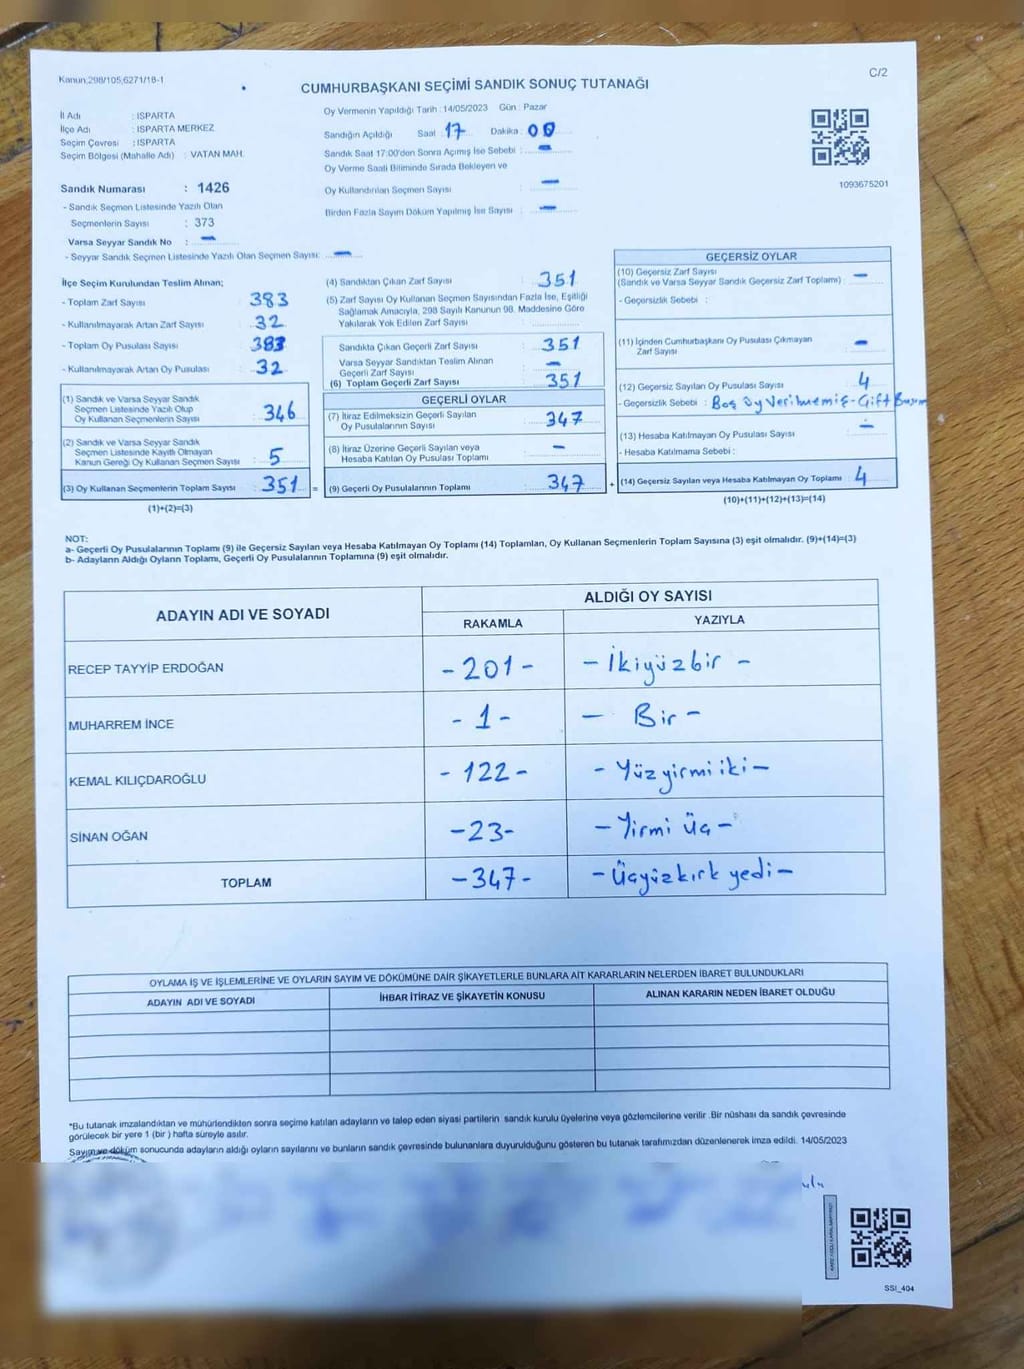 Kanun,298/105,6271/18-1
C/2
CUMHURBAŞKANI SEÇİMİ SANDIK SONUÇ TUTANAĞI
İl Adı : ISPARTA
İlçe Adı : ISPARTA MERKEZ
Seçim Çevresi : ISPARTA
Seçim Bölgesi (Mahalle Adı) : VATAN MAH.
Oy Vermenin Yapıldığı Tarih : 14/05/2023 Gün : Pazar
Sandığın Açıldığı Saat 17 Dakika : 00
Sandık Saat 17:00'den Sonra Açımış İse Sebebi : -
Oy Verme Saati Bitiminde Sırada Bekleyen ve
Oy Kullandırılan Seçmen Sayısı : -
Birden Fazla Sayım Döküm Yapılmış İse Sayısı : -
1093675201
Sandık Numarası : 1426
- Sandık Seçmen Listesinde Yazılı Olan
Seçmenlerin Sayısı : 373
Varsa Seyyar Sandık No : -
- Seyyar Sandık Seçmen Listesinde Yazılı Olan Seçmen Sayısı: -
İlçe Seçim Kurulundan Teslim Alınan;
- Toplam Zarf Sayısı : 383
- Kullanılmayarak Artan Zarf Sayısı : 32
- Toplam Oy Pusulası Sayısı : 383
- Kullanılmayarak Artan Oy Pusulası : 32
(1) Sandık ve Varsa Seyyar Sandık
Seçmen Listesinde Yazılı Olup
Oy Kullanan Seçmenlerin Sayısı : 346
(2) Sandık ve Varsa Seyyar Sandık
Seçmen Listesinde Kayıtlı Olmayan
Kanun Gereği Oy Kullanan Seçmen Sayısı : 5
(3) Oy Kullanan Seçmenlerin Toplam Sayısı : 351 =
(1)+(2)=(3)
(4) Sandıktan Çıkan Zarf Sayısı : 351
(5) Zarf Sayısı Oy Kullanan Seçmen Sayısından Fazla İse, Eşitliği
Sağlamak Amacıyla, 298 Sayılı Kanunun 98. Maddesine Göre
Yakılarak Yok Edilen Zarf Sayısı :
Sandıkta Çıkan Geçerli Zarf Sayısı : 351
Varsa Seyyar Sandıktan Teslim Alınan
Geçerli Zarf Sayısı : -
(6) Toplam Geçerli Zarf Sayısı : 351
GEÇERLİ OYLAR
(7) İtiraz Edilmeksizin Geçerli Sayılan
Oy Pusulalarının Sayısı : 347
(8) İtiraz Üzerine Geçerli Sayılan veya
Hesaba Katılan Oy Pusulası Toplamı : -
(9) Geçerli Oy Pusulalarının Toplamı : 347 +
GEÇERSİZ OYLAR
(10) Geçersiz Zarf Sayısı
(Sandık ve Varsa Seyyar Sandık Geçersiz Zarf Toplamı) : -
- Geçersizlik Sebebi :
(11) İçinden Cumhurbaşkanı Oy Pusulası Çıkmayan
Zarf Sayısı : -
(12) Geçersiz Sayılan Oy Pusulası Sayısı : 4
- Geçersizlik Sebebi : Boş oy Verilmemiş - Gift Basım
(13) Hesaba Katılmayan Oy Pusulası Sayısı : -
- Hesaba Katılmama Sebebi :
(14) Geçersiz Sayılan veya Hesaba Katılmayan Oy Toplamı : 4
(10)+(11)+(12)+(13)=(14)
NOT:
a- Geçerli Oy Pusulalarının Toplamı (9) ile Geçersiz Sayılan veya Hesaba Katılmayan Oy Toplamı (14) Toplamları, Oy Kullanan Seçmenlerin Toplam Sayısına (3) eşit olmalıdır. (9)+(14)=(3)
b- Adayların Aldığı Oyların Toplamı, Geçerli Oy Pusulalarının Toplamına (9) eşit olmalıdır.
ADAYIN ADI VE SOYADI
ALDIĞI OY SAYISI
RAKAMLA YAZIYLA
RECEP TAYYİP ERDOĞAN -201- -İkiyüzbir-
MUHARREM İNCE -1- -Bir-
KEMAL KILIÇDAROĞLU -122- -Yüzyirmi iki-
SİNAN OĞAN -23- -Yirmi üç-
TOPLAM -347- -Üçyüzkırk yedi-
OYLAMA İŞ VE İŞLEMLERİNE VE OYLARIN SAYIM VE DÖKÜMÜNE DAİR ŞİKAYETLERLE BUNLARA AİT KARARLARIN NELERDEN İBARET BULUNDUKLARI
ADAYIN ADI VE SOYADI İHBAR İTİRAZ VE ŞİKAYETİN KONUSU ALINAN KARARIN NEDEN İBARET OLDUĞU
*Bu tutanak imzalandıktan ve mühürlendikten sonra seçime katılan adayların ve talep eden siyasi partilerin sandık kurulu üyelerine veya gözlemcilerine verilir .Bir nüshası da sandık çevresinde
görülecek bir yere 1 (bir) hafta süreyle asılır.
Sayım ve döküm sonucunda adayların aldığı oyların sayılarını ve bunların sandık çevresinde bulunanlara duyurulduğunu gösteren bu tutanak tarafımızdan düzenlenerek imza edildi. 14/05/2023
SSI_404